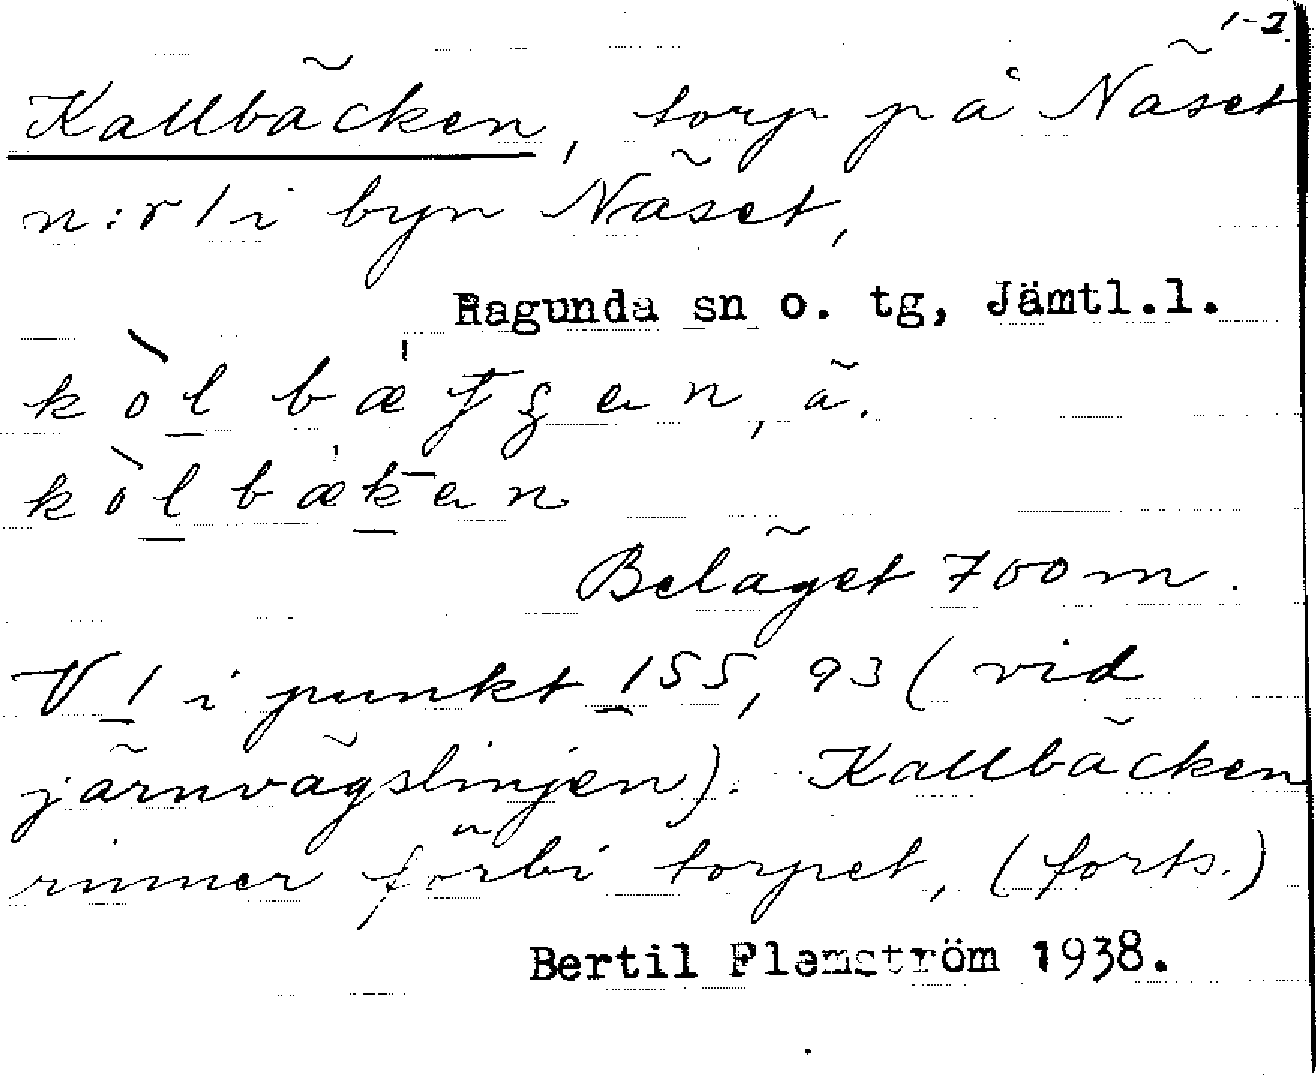 1-2.
Kallbäcken, torp på Näset
n:r 1 i byn Näset,
Ragunda sn o. tg, Jämtl.l.
kòl bæ
kòlbæken
Beläget 700 m.
V 1 i punkt 155,93 (vid
järnvägslinjen). Kallbäcken
rinner förbi torpet, (forts.)
Bertil Flemström 1938.